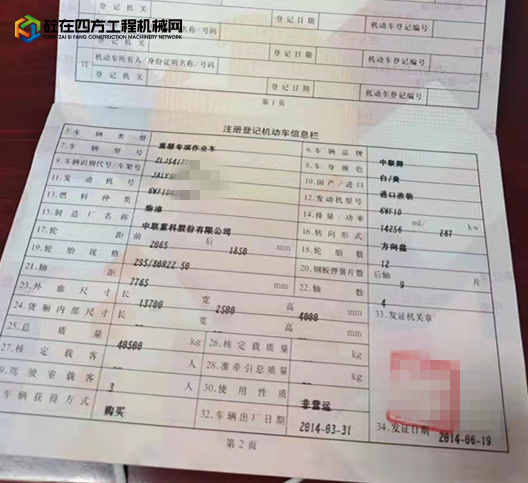 砼在四方工程机械网
TONG ZAI SI FANG CONSTRUCTION MACHINERY NETWORK
登记日期 机动车登记编号
登记机关 登记日期 机动车登记编号
机动车所有人/身份证明名称/号码
登记机关 登记日期 机动车登记编号
第1页
注册登记机动车信息栏
5.车辆类型 重型专项作业车 6.车辆品牌 中联牌
7.车辆型号 ZLJ541 8.车身颜色 白/黄
9.车辆识别代号/车架号 10.国产/进口 进口改装
11.发动机号 6WF1D 12.发动机型号 6WF1D
13.燃料种类 柴油 14.排量/功率 14256 ml/ 287 kw
15.制造厂名称 中联重科股份有限公司 16.转向形式 方向盘
17.轮距 前 2065 后 1850 mm 18.轮胎数 12
19.轮胎规格 295/80R22.50 20.钢板弹簧片数 后轴 9 片
21.轴距 7765 mm 22.轴数 4
23.外廓尺寸 长 13700 宽 2500 高 4000 mm 33.发证机关章
24.货厢内部尺寸 长 宽 高 mm
25.总质量 40500 kg 26.核定载质量 kg
27.核定载客 人 28.准牵引总质量 kg
29.驾驶室载客 3 人 30.使用性质 非营运
车辆获得方式 购买 32.车辆出厂日期 2014-03-31 34.发证日期 2014-06-19
第2页